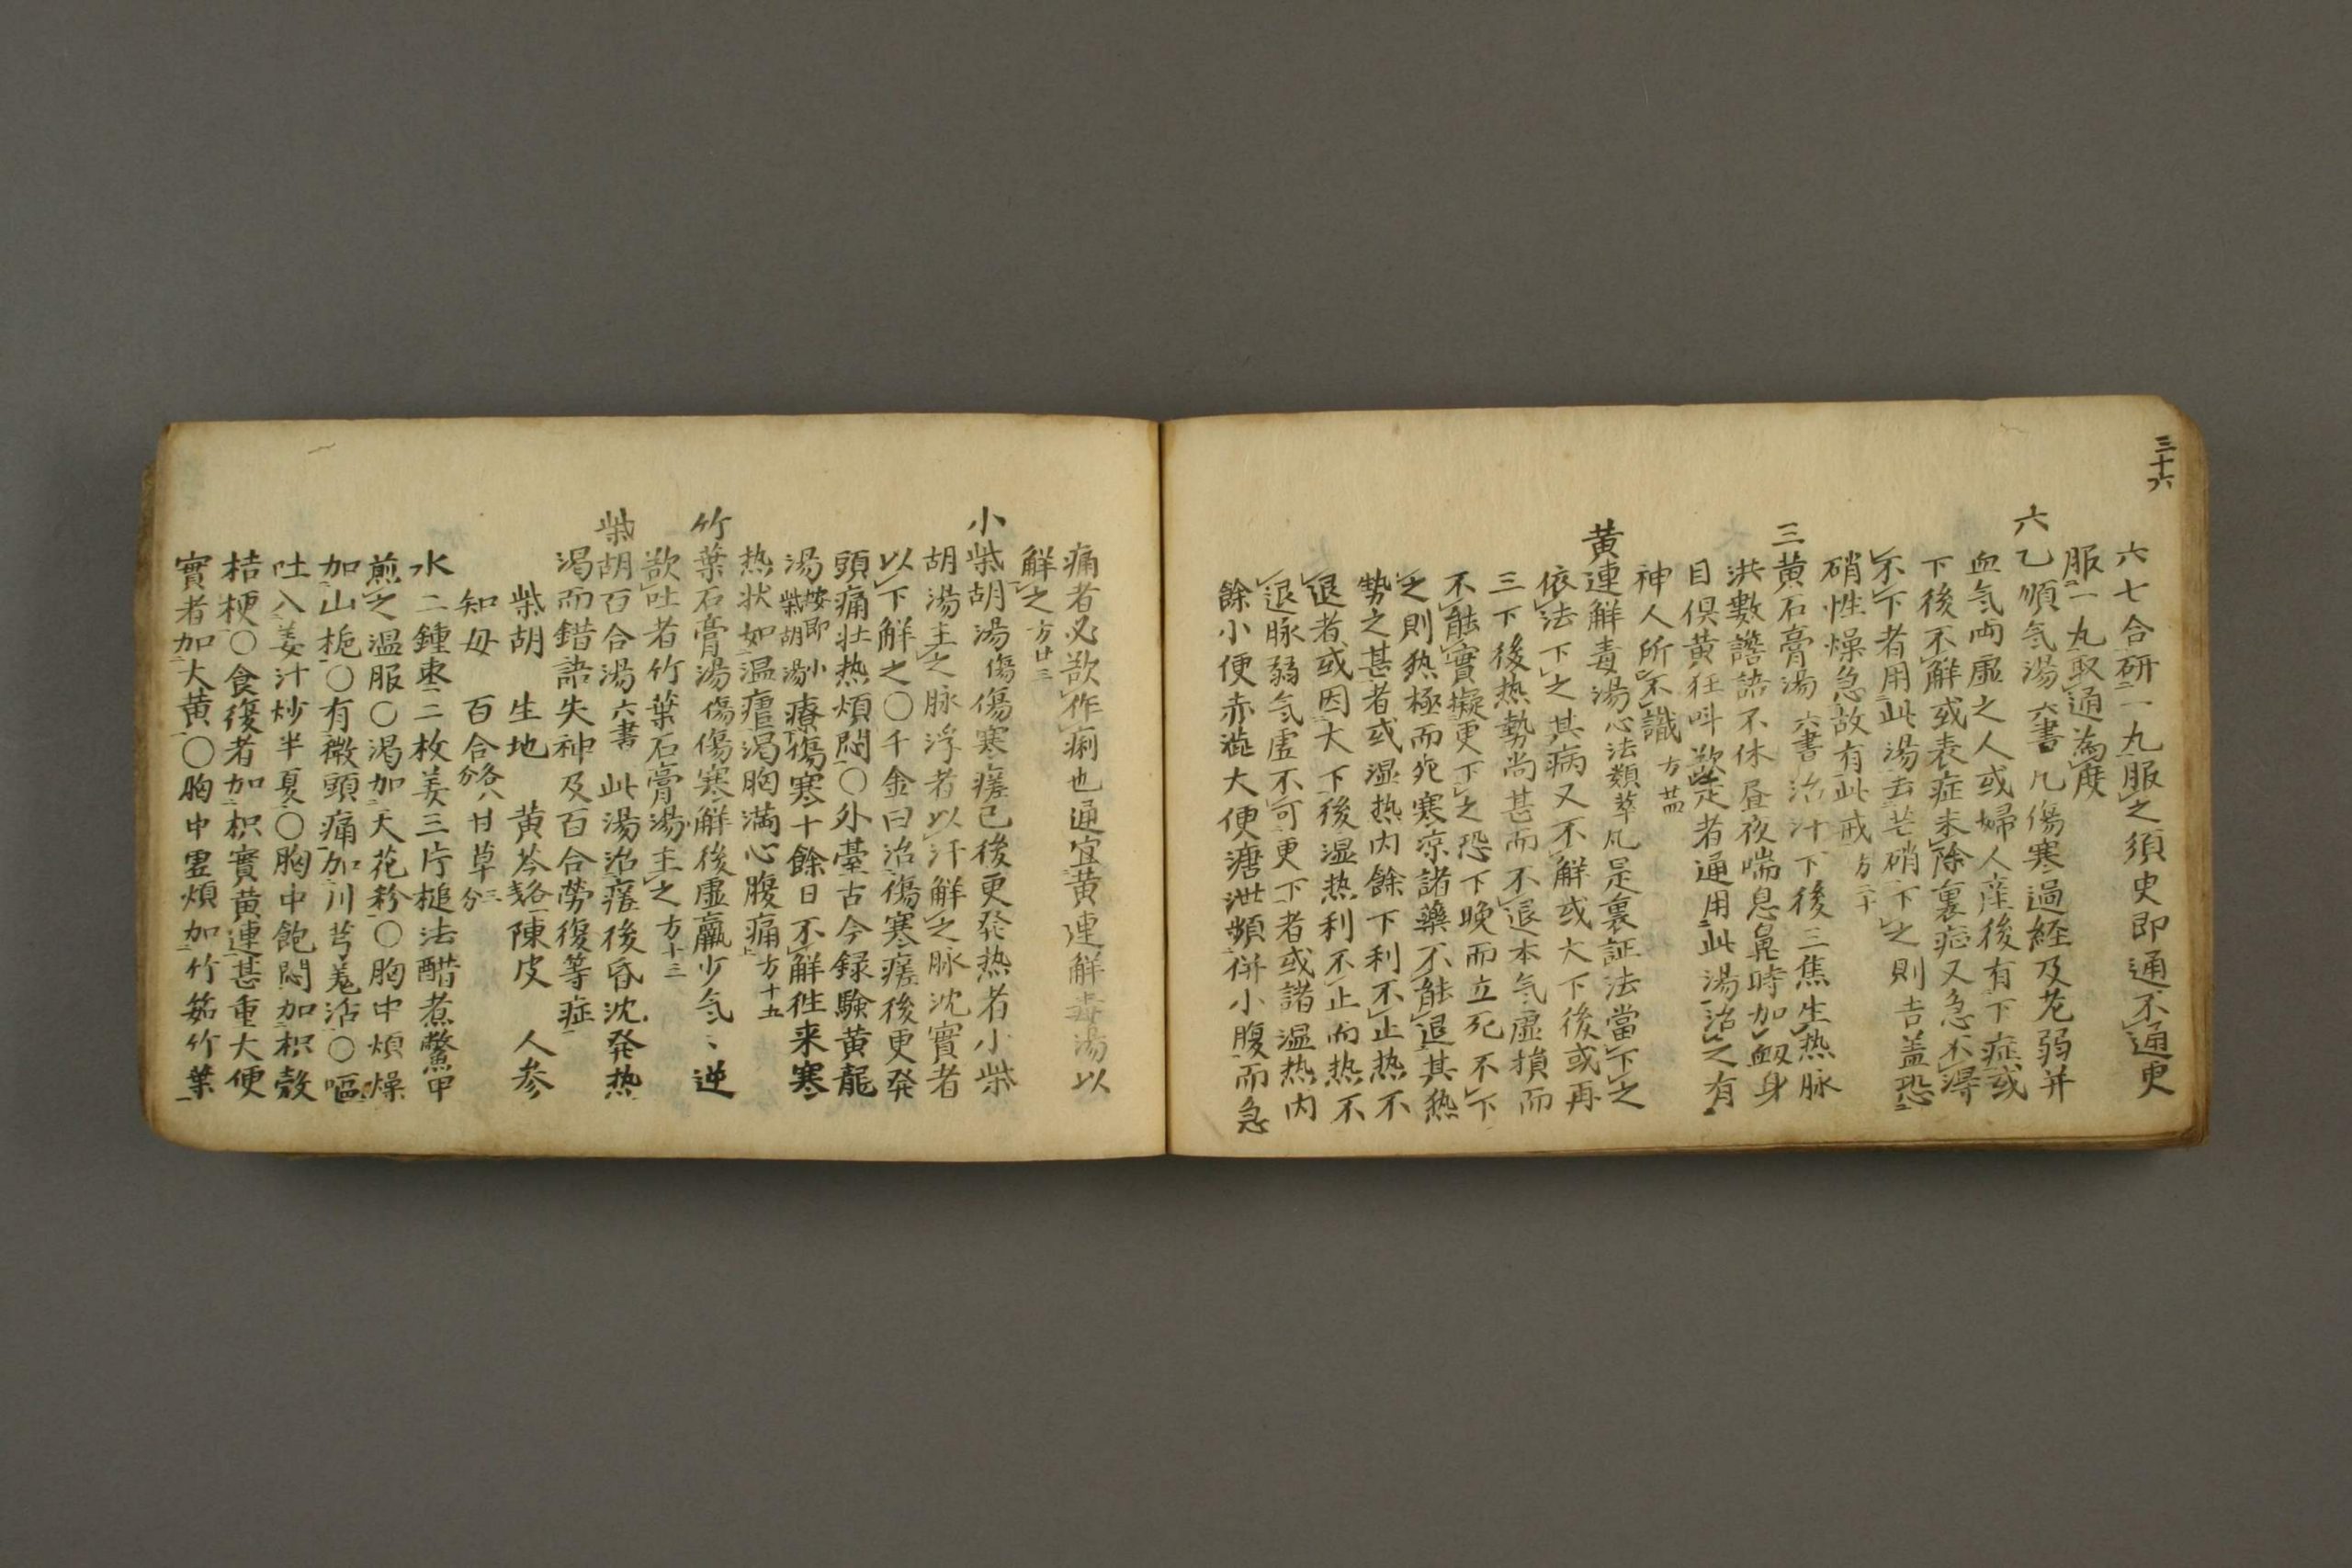 三十六
六七合研一丸服之須臾即通不通更
服一丸取通為度
六乙順気湯六書凡傷寒過経及老弱并
血気両虚之人或婦人産後有下症或
下後不解或表症未除裏症又急不得
不下者用此湯去芒硝下之則吉盖恐
硝性燥急故有此戒方二十
三黄石膏湯六書治汗下後三焦生热脉
洪數譫語不休昼夜喘息鼻時加衂身
目倶黄狂叫欲走者通用此湯治之有
神人所不識方
黄連解毒湯心法類萃凡是裏証法當下之
依法下之其病又不解或大下後或再
三下後热勢尚甚而不退本気虚損而
不能實擬更下之恐下晩而立死不下
之則热極而死寒凉諸藥不能退其热
勢之甚者或湿热内餘下利不止热不
退者或因大下後湿热利不止而热不
退脉弱気虚不可更下者或諸温热内
餘小便赤澁大便溏泄頻併小腹而急
痛者必欲作痢也通宜黄連解毒湯以
解之方廿三
小柴胡湯傷傷寒瘥已後更発热者小柴
胡湯主之脉浮者以汗解之脉沈實者
以下解之〇千金曰治傷寒瘥後更発
頭痛壮热煩悶〇外臺古今録験黄龍
湯按即小柴胡湯療傷寒十餘日不解徃来寒
热状如温瘧渇胸満心腹痛方十五
竹葉石膏湯傷傷寒解後虚羸少気〻逆
欲吐者竹葉石膏湯主之方十三
柴胡百合湯六書此湯治瘥後昏沈発热
渇而錯語失神及百合勞復等症
柴胡 生地 黄芩各一 陳皮 人参
知母 百合各八分 甘草三分
水二鍾枣二枚姜三片槌法醋煮鱉甲
煎之温服〇渇加天花粉〇胸中煩燥
加山梔〇有微頭痛加川芎羌活〇嘔
吐入姜汁炒半夏〇胸中飽悶加枳殻
桔梗〇食復者加枳實黄連甚重大便
實者加大黄〇胸中虚煩加竹筎竹葉